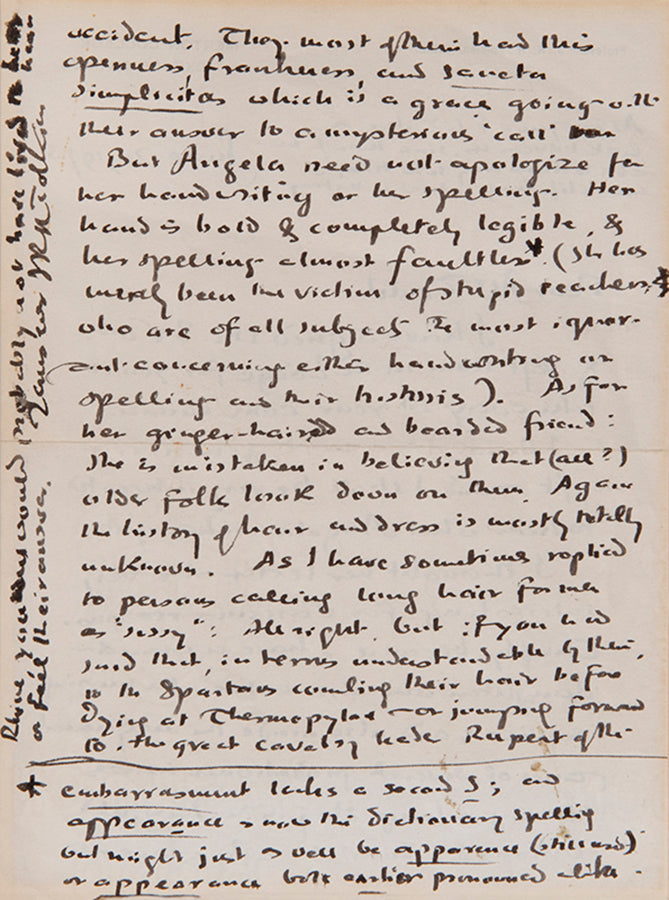 accident. They most of them had this
openness, frankness, and sancta
simplicitas which is a grace going with
their answer to a mysterious 'call'
But Angela need not apologize for
her handwriting or her spelling. Her
hand is bold & completely legible, &
her spelling almost faultless* (She has
merely been the victim of stupid teachers,
who are of all subjects the most ignor-
ant concerning either handwriting or
spelling and their history). As for
her ginger-haired and bearded friend:
she is mistaken in believing that (all?)
older folk look down on them. Again
the history of hair and dress is mostly totally
unknown. As I have sometimes replied
to persons calling long hair for men
as "sissy": All right, but if you had
said that, in terms understandable by them,
to the Spartans combing their hair before
dying at Thermopylae – or jumping forward
to the great cavalry leader Rupert of the
Rhine you would probably not have lived to hear
or feel their answer.
Yours ever JRR Tolkien
* embarrasment lacks a second s; and
appearance is now the dictionary spelling
but might just as well be apparence
or appearence both earlier pronounced alike.